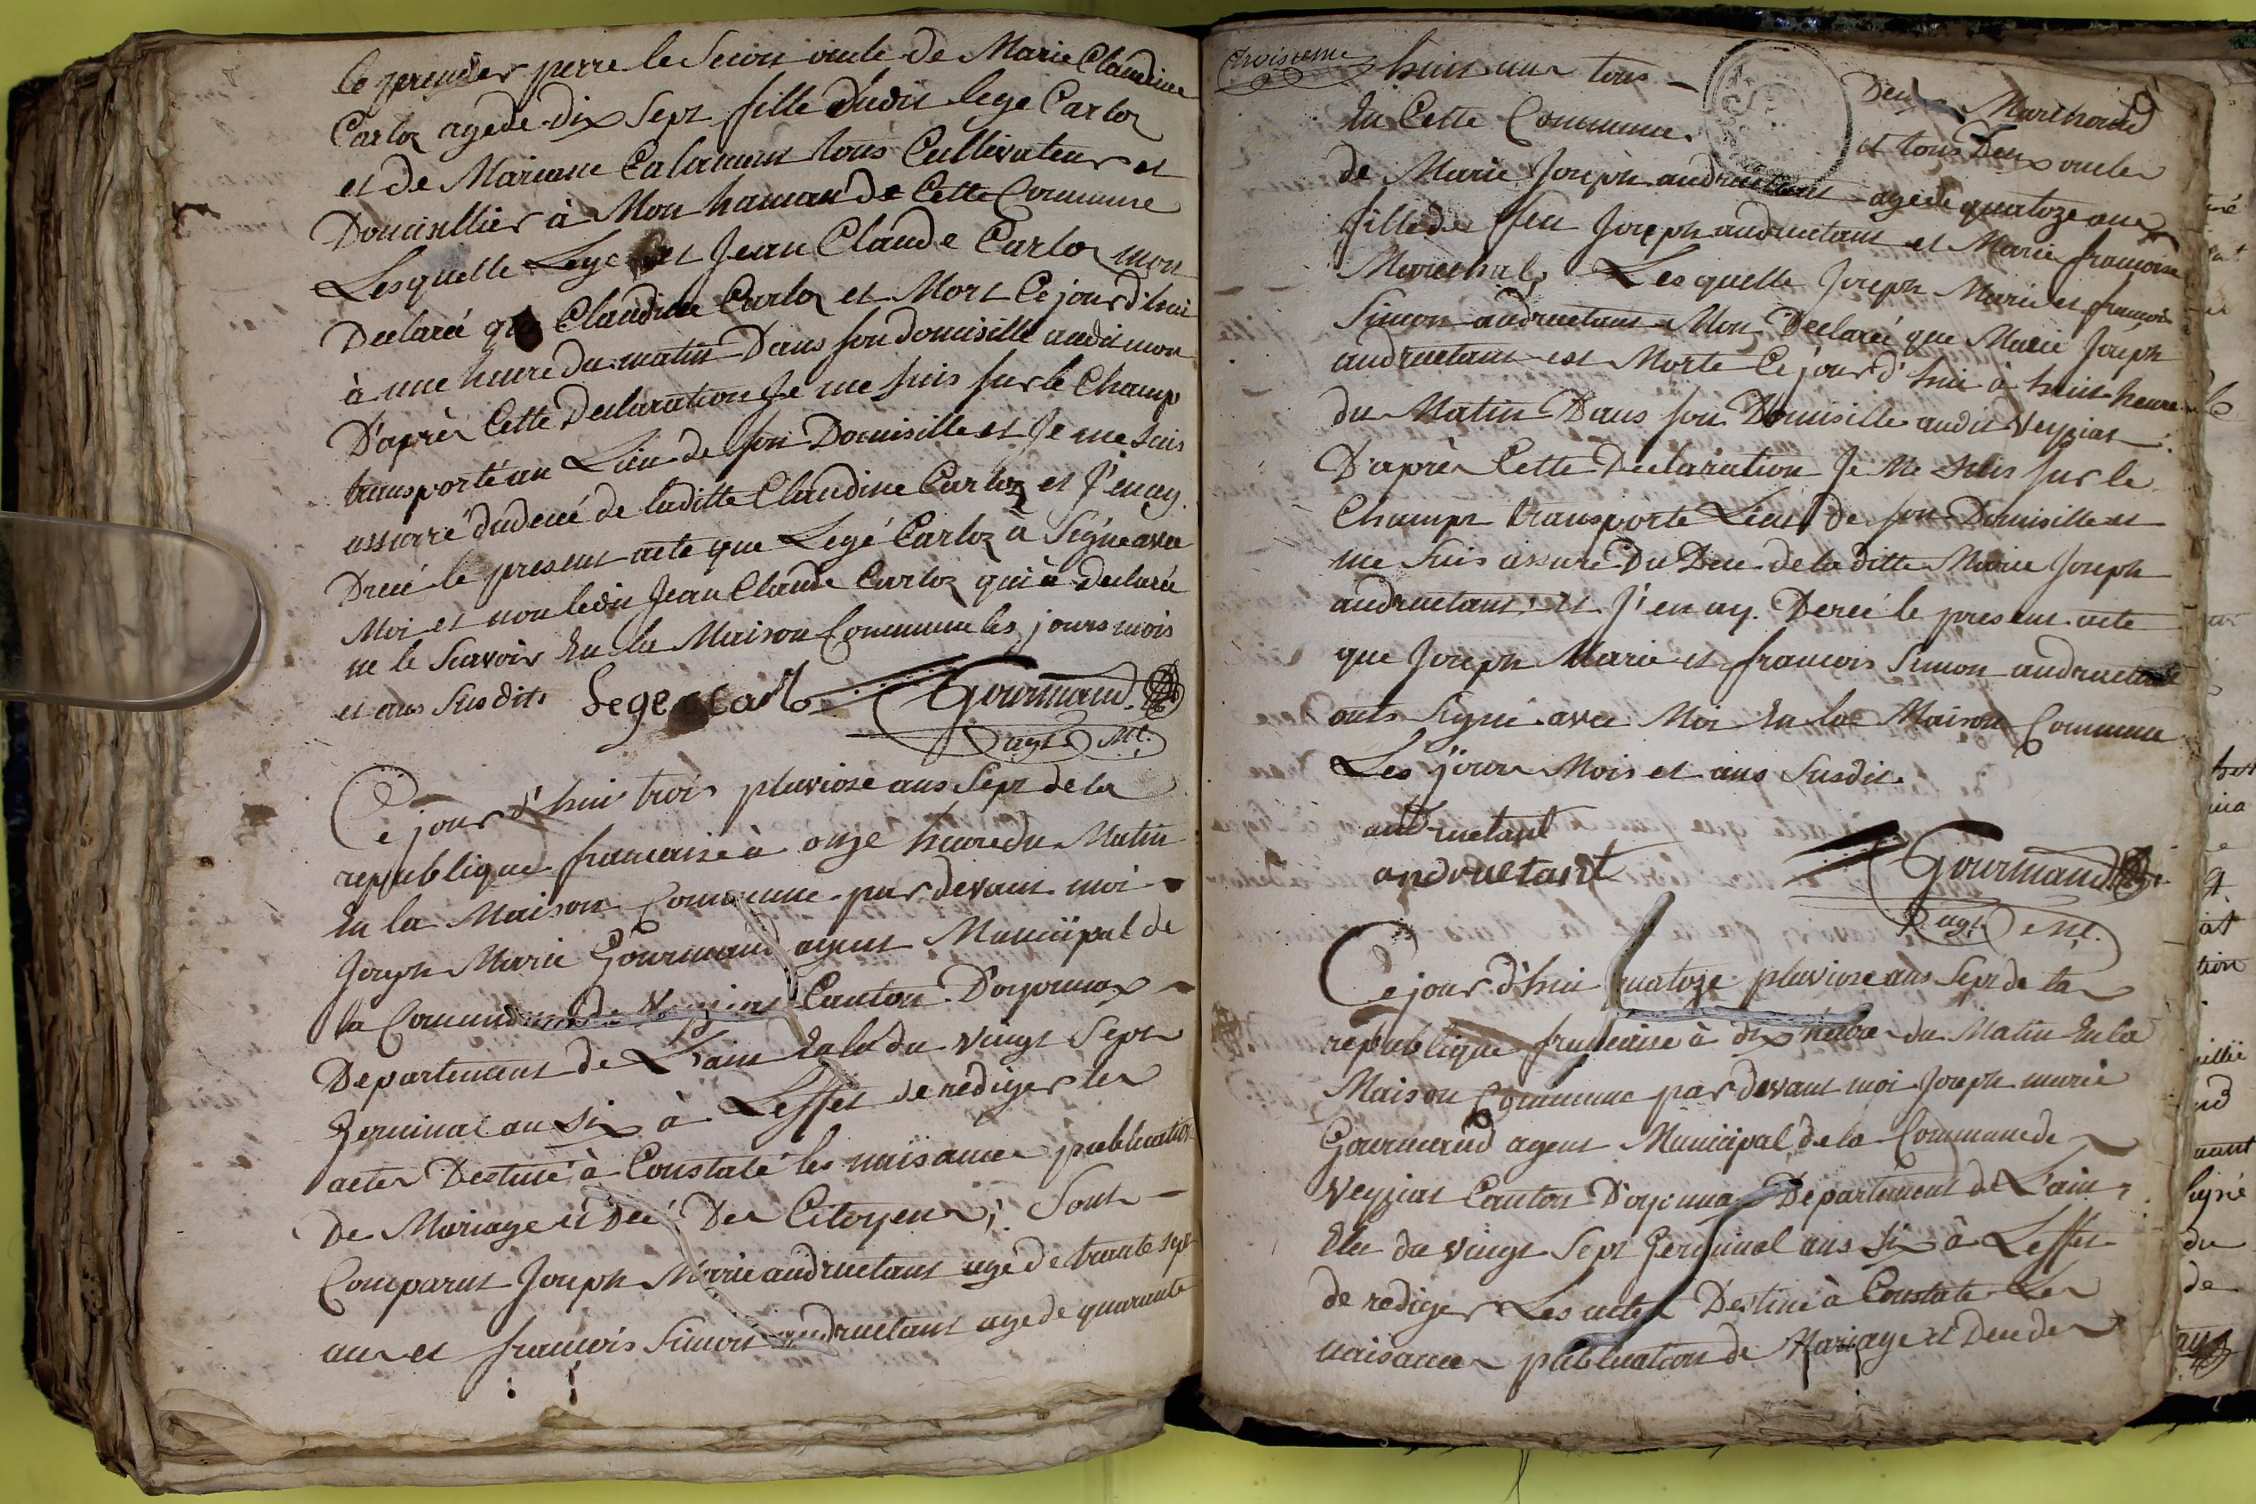 le premier perre le Second oncle de Marie Claudine
Carloz agede dix Sept fille dudit Lege Carloz
et de Mariane Calament tous Cultivateurs et
Domisillier à Mon haman de Cette Commune
Lesquelle Lege et Jean Claude Carloz mon
Declaré que Claudine Carloz et Mort Ce jour d'hui
à une heure du matin Dans son domisille audit mon
D'après Cette Declaration Je me suis sur le Champ
transporté au Lieu de son Domisille et Je me suis
assurré dudecé de laditte Claudine Carloz et J'en ay
Dreié le present acte que Legé Carloz à Signé avec
Moi et non ledit Jean Claude Carloz qui à declarée
ne le Scavoir En la Maison Commune les jours mois
et ans Susdits Lege carlo Gourmand
agt Ml.
Ce jour d'hui trois pluviose ans Sept de la
republique francaise à onze heure du Matin
En la Maison Commune par devant moi
Joseph Marie Gourmand agent Municipal de
la Commune de Veyziat Canton D'oyonnax
Departement de L'ain du vingt Sept
Germinal an Six à Leffet de rédiger les
actes Destiné à Constaté les naisances publication
De Mariage et Decé Des Citoyens; Sont
Comparut Joseph Marie andruetant age de trante sept
ans et francois Simon andruetant age de quarante
troisieme huit ans tous Deux Marchand
En Cette Commune et tous Deux oncles
de Marie Joseph andruetant agede quatoze ans
fille de feu Joseph andruetant et Marie francoise
Marechal, Lesquelle Joseph Marie et francois
Simon andruetant Mon Declaré que Marie Joseph
andruetant est Morte Ce jour d'hui à huit heure
du Matin Dans son Domisille audit Veyziat
D'après Cette Declaration Je Me suis sur le
Champt transporte Lieu de son Domisille et
me suis assuré Du Dece de la ditte Marie Joseph
andruetant; et J'en ay Dereé le present acte
que Joseph Marie et francois Simon andruetant
onts Signé avec Moi En la Maison Commune
Les jours Mois et ans Susdit.
andruetant
andruetant Gourmand
agt. Ml.
Ce jour d'hui quatoze pluviose ans Sept de la
republique francaise à dix heure du Matin En la
Maison Commune par devant moi Joseph marie
Gourmand agent Municipal de la Commune de
Veyziat Canton D'oyonnax Departement de L'ain
Elu du vingt Sept Germinal ans Six à Leffet
de rediger Les actes Destiné à Constate Les
naisances publication de Mariage et Dece des